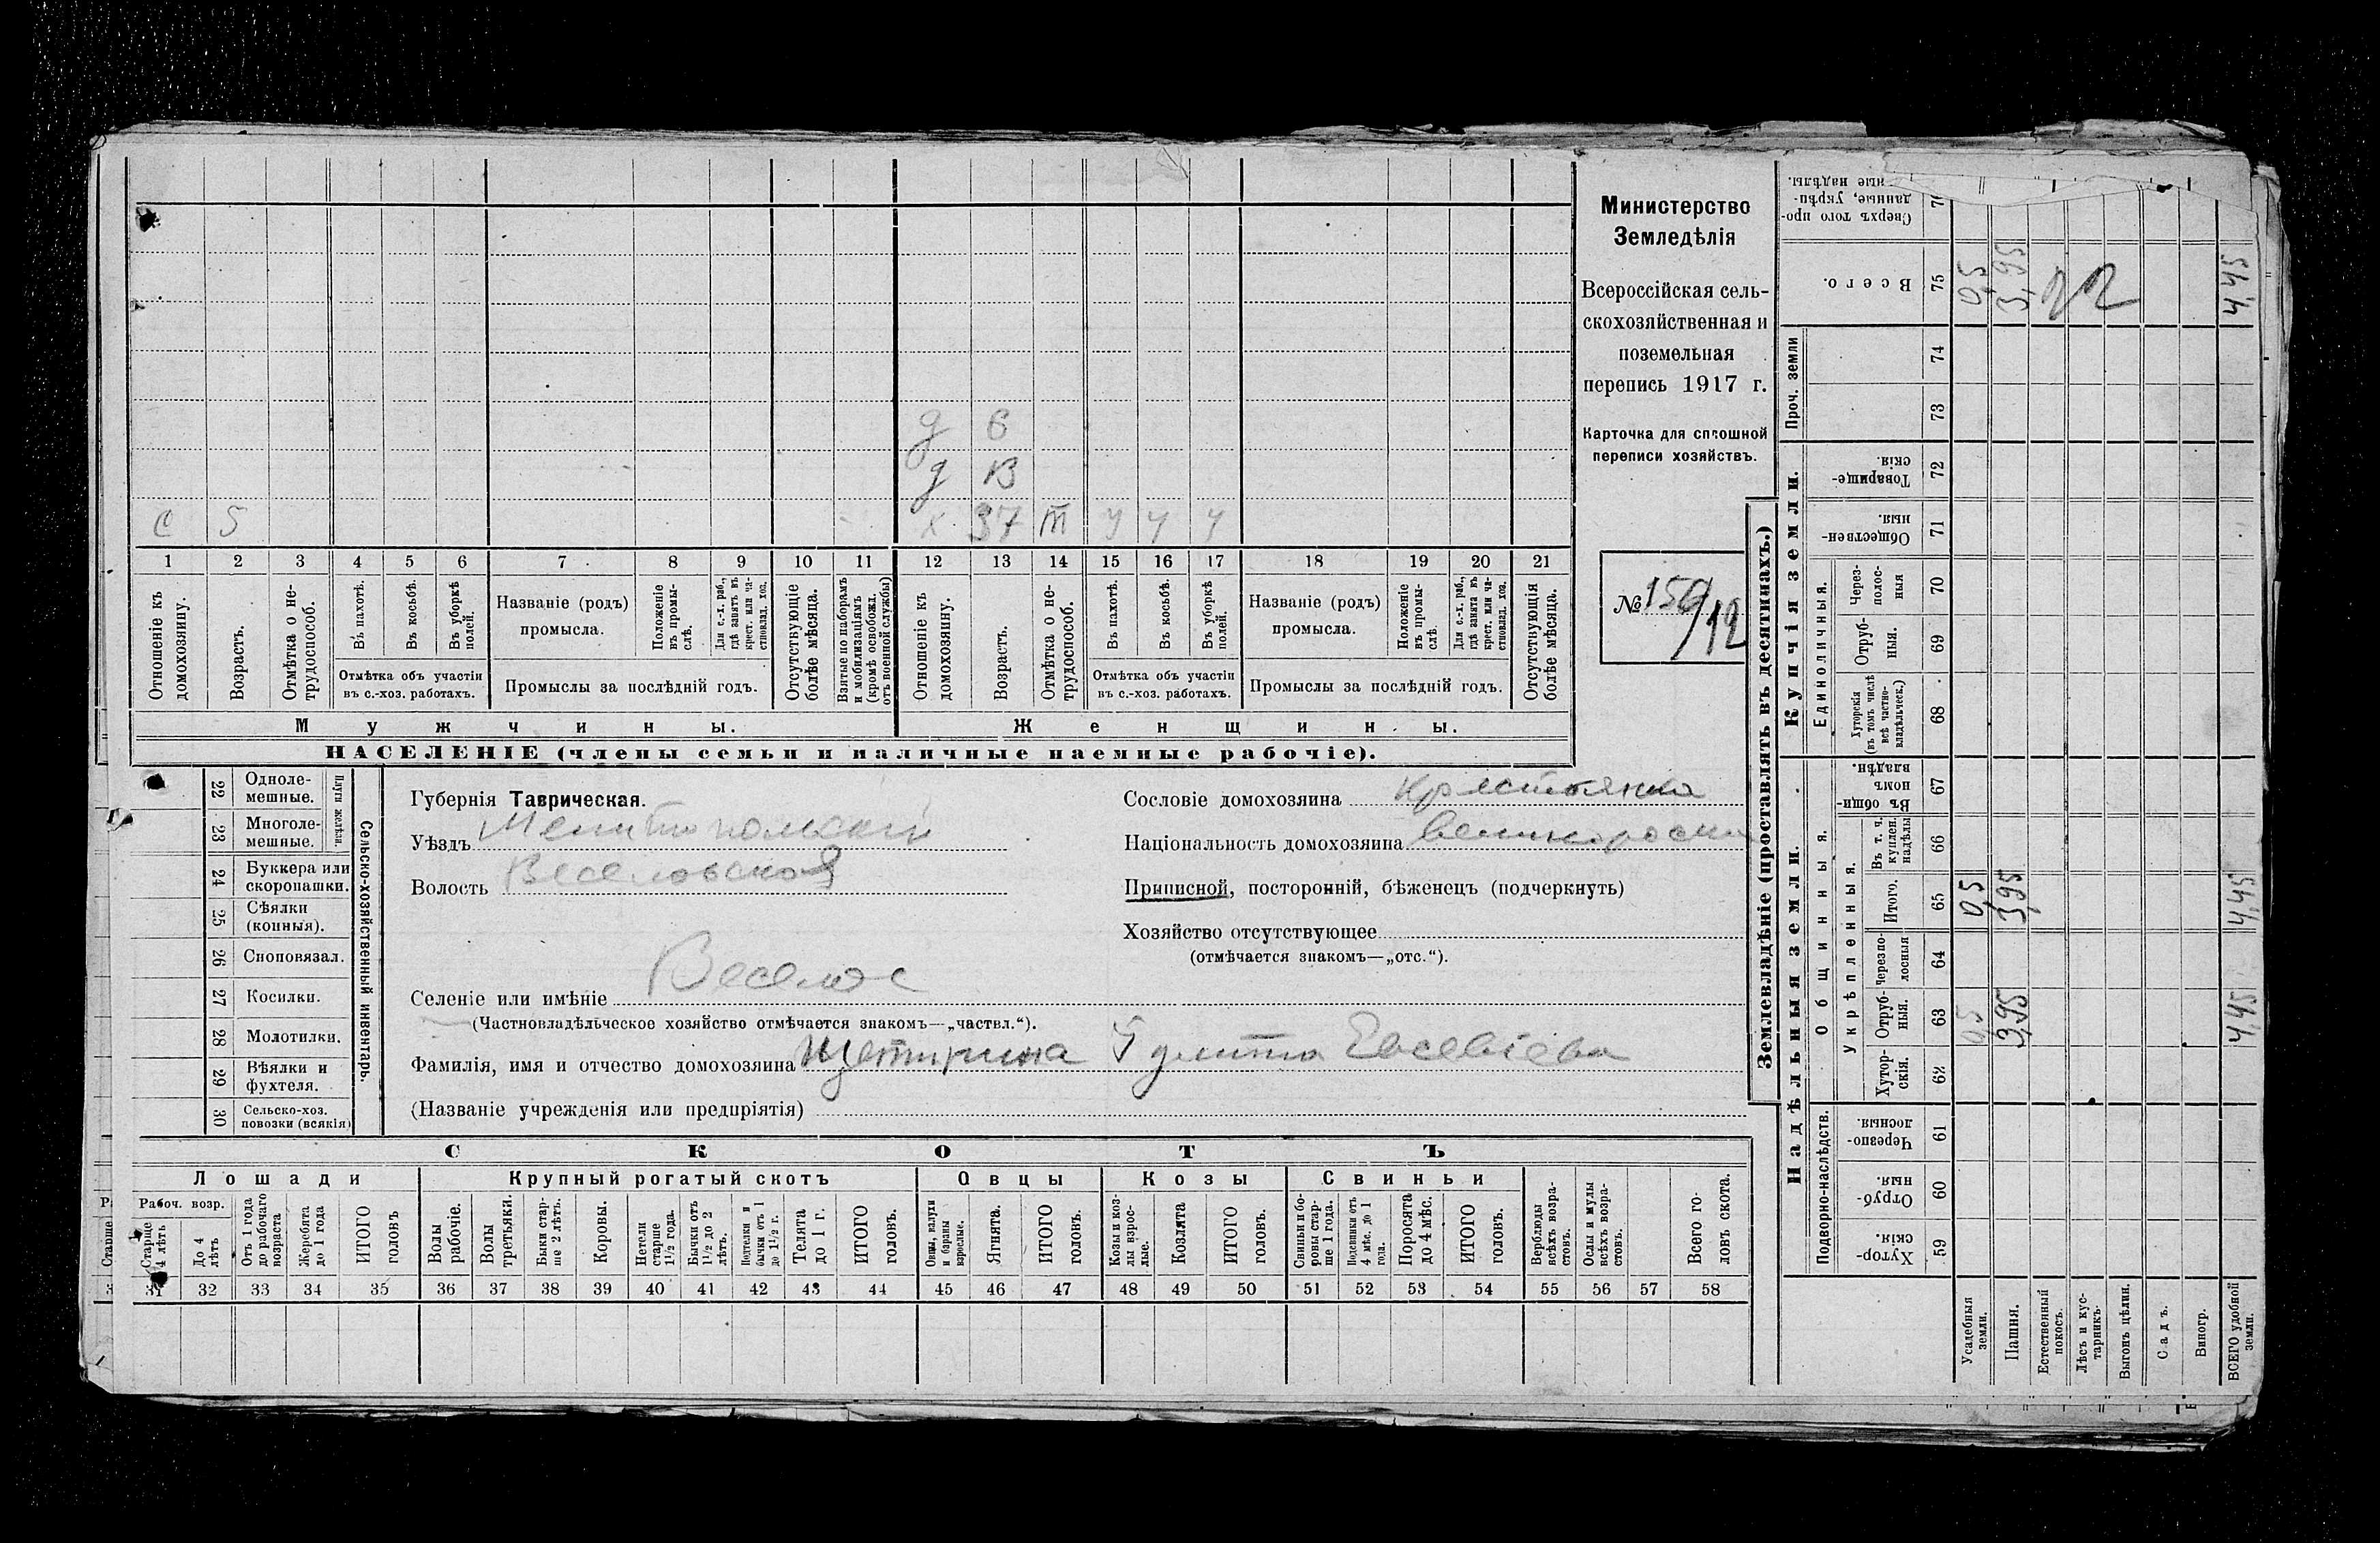 Министерство
Земледѣлія
Всероссійская сель-
скохозяйственная и
поземельная
перепись 1917 г.
Карточка для сплошной
переписи хозяйствъ.
№ 159/12
д 6
д 13
с 5 х 37 т ч ч ч
1 2 3 4 5 6 7 8 9 10 11 12 13 14 15 16 17 18 19 20 21
Отношеніе къ домохозяину.
Возрастъ.
Отмѣтка о не-трудоспособ.
Въ пахотѣ.
Въ косьбѣ.
Въ уборкѣ полей.
Отмѣтка объ участіи
въ с.-хоз. работахъ.
Названіе (родъ)
промысла.
Положеніе въ промы-слѣ.
Для с.-х. раб., гдѣ занятъ въ крест. или ча-стновлад. хоз.
Промыслы за послѣдній годъ.
Отсутствующіе болѣе мѣсяца.
Взятые по наборамъ и мобилизаціямъ (кромѣ освобожд. отъ военной службы)
Отношеніе къ домохозяину.
Возрастъ.
Отмѣтка о не-трудоспособ.
Въ пахотѣ.
Въ косьбѣ.
Въ уборкѣ полей.
Отмѣтка объ участіи
въ с.-хоз. работахъ.
Названіе (родъ)
промысла.
Положеніе въ промы-слѣ.
Для с.-х. раб., гдѣ занята въ крест. или ча-стновлад. хоз.
Промыслы за послѣдній годъ.
Отсутствующія болѣе мѣсяца.
Мужчины. Женщины.
НАСЕЛЕНІЕ (члены семьи и наличные наемные рабочіе).
22 Одноле-мешные.
23 Многоле-мешные.
Плуги желѣзн.
24 Буккера или скоропашки.
25 Сѣялки (конныя).
26 Сноповязал.
27 Косилки.
28 Молотилки.
29 Вѣялки и фухтеля.
30 Сельско-хоз. повозки (всякія)
Сельско-хозяйственный инвентарь.
Губернія Таврическая.
Уѣздъ Мелитопольскій
Волость Веселовская
Селеніе или имѣніе Веселое
(Частновладѣльческое хозяйство отмѣчается знакомъ—„частвл.“).
Фамилія, имя и отчество домохозяина Щетинина Улита Евсевіева
(Названіе учрежденія или предпріятія)
Сословіе домохозяина крестьянка
Національность домохозяина великоросска
Приписной, посторонній, бѣженецъ (подчеркнуть)
Хозяйство отсутствующее
(отмѣчается знакомъ—„отс.“).
СКОТЪ
Лошади Крупный рогатый скотъ Овцы Козы Свиньи
Рабоч. возр.
Старше 4 лѣтъ
До 4 лѣтъ
Отъ 1 года до рабочаго возраста
Жеребята до 1 года
ИТОГО головъ
Волы рабочіе.
Волы третьяки.
Быки стар-ше 2 лѣтъ.
Коровы.
Нетели старше 1½ года.
Бычки отъ 1½ до 2 лѣтъ.
Подтелки и бычки отъ 1 до 1½ г.
Телята до 1 г.
ИТОГО головъ.
Овцы, валухи и бараны взрослые.
Ягнята.
ИТОГО головъ.
Козы и коз-лы взрос-лые.
Козлята
ИТОГО головъ.
Свиньи и бо-ровы стар-ше 1 года.
Подсвинки отъ 4 мѣс. до 1 года.
Поросята до 4 мѣс.
ИТОГО головъ.
Верблюды всѣхъ возра-стовъ.
Ослы и мулы всѣхъ возра-стовъ.
Всего го-ловъ скота.
31 32 33 34 35 36 37 38 39 40 41 42 43 44 45 46 47 48 49 50 51 52 53 54 55 56 57 58
Землевладѣніе (проставлять въ десятинахъ.)
Надѣльныя земли. Купчія земли. Проч. земли
Подворно-наслѣдств.
Общинныя.
Укрѣпленныя.
Единоличныя.
Хутор-скія. 59
Отруб-ныя. 60
Черезпо-лосныя. 61
Хутор-скія. 62
Отруб-ныя. 63 0,5 3,95 4,45
Черезпо-лосныя 64
Итого. 65 0,5 3,95 4,45
Въ т. ч. куплен. надѣлы 66
Въ общи-номъ владѣн. 67
Хуторскія (въ томъ числѣ всѣ частно-владѣльческ.) 68
Отруб-ныя. 69
Через-полос-ныя 70
Обществен-ныя. 71
Товарище-скія. 72
73
74
Всего. 75 0,5 3,95 4,45
Сверхъ того про-данные, укрѣп-
ные надѣлы.
Усадебныя земли.
Пашня.
Естественный покосъ.
Лѣсъ и кус-тарникъ.
Выгонъ цѣлин.
Садъ.
Виногр.
ВСЕГО удобной земли.